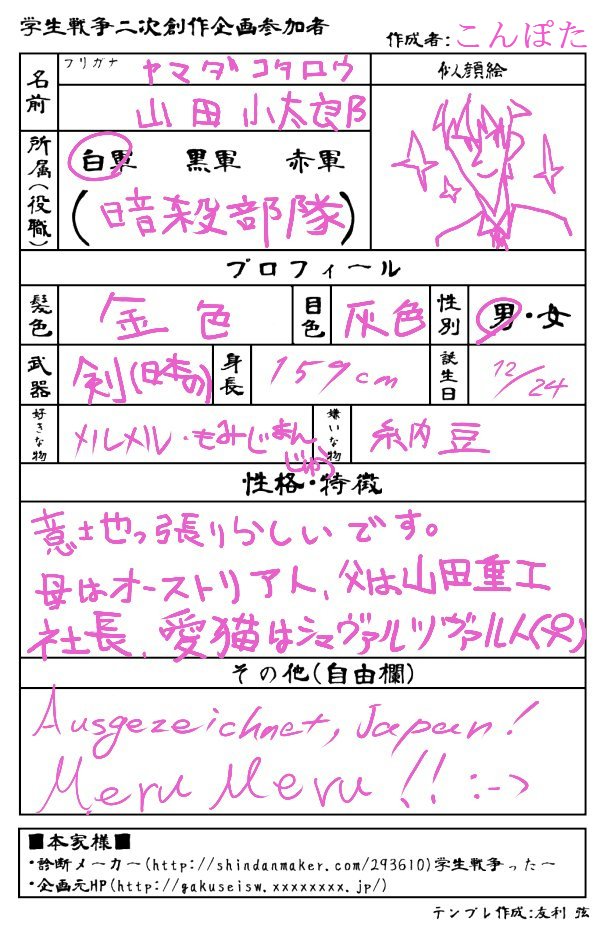 学生戦争二次創作企画参加者
作成者:こんぽた
名前
フリガナ
ヤマダ コタロウ
似顔絵
山田 小太郎
所属(役職)
白軍 黒軍 赤軍
(暗殺部隊)
プロフィール
髪色
金色
目色
灰色
性別
男・女
武器
剣(日本の)
身長
159cm
誕生日
12/24
好きな物
メルメル・もみじまんじゅう
嫌いな物
納豆
性格・特徴
意土也っ張りらしいです。
母はオーストリア人、父は山田重工
社長、愛猫はシュヴァルツヴァルト(♀)
その他(自由欄)
Ausgezeichnet, Japan!
Meru Meru !! :->
■本家様■
・診断メーカー(http://shindanmaker.com/293610)学生戦争ったー
・企画元HP(http://gakuseisw.xxxxxxxx.jp/)
テンプレ作成:友利 弦